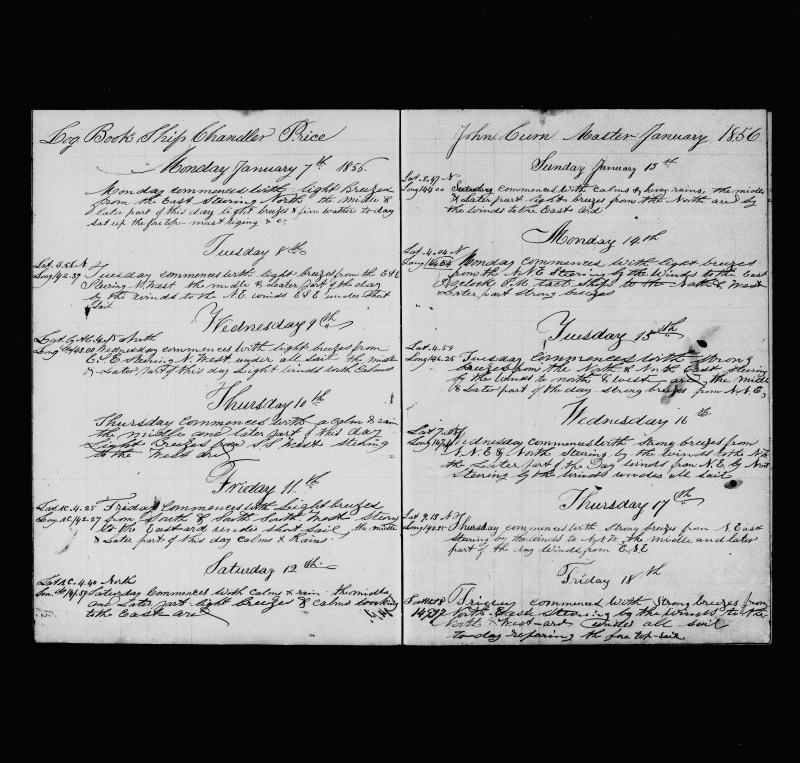 Log Book Ship Chandler Price
Monday January 7th 1856
Monday commenced with light Breezes
from the East Steering North the midle &
later part of this day light brezes & fine wather to day
set up the fore top-mast riging & c.
Tuesday 8th
Lat. 3.58 N
Long 142.39 Tuesday commences with light breezes from the E & E
Steering N. West the midle & Leater part of the day
by the winds to the N.E. winds E & E under Short
Sail
Wednesday 9th
Lat. By AC. 4.15 North
Long 143.00 Wednesday commences with light breezes from
E. S. E Steering N. West under all Sail the midle
& Later part of this day Light winds with Calms
Thursday 10th
Thursday Commences with a calm & rain
the Middle and later part of this day
Light Breezes from S S West
to the West ard
Friday 11th
Lat AC. 4.25 Friday Commences with Light breezes
Long AC 142.27 from South & South South West
to the East ard under Short Sail the midle
& Later part of this day Calms & Rains
Saturday 12th
Lat A.C. 4.40 North
Lon. 141.59 Saturday Commences with Calms & rain the midle
and Later part light breezes & calms working
to the East ard
John Curn Master January 1856
Sunday January 13th
Lat. 3.47 N
Long 144.00 Sunday commences with Calms & hevy rains, the midle
& Later part light breezes from the North ard by
the winds to the East ard
Monday 14th
Lat. 4.04 N
Long Monday commences with light breezes
from the N.N.E Steering by the winds to the East
Oclock P.M. tact Ships to the North & West
Later part Strong brezes
Tuesday 15th
Lat. 4.59
Long 146.25 Tuesday commences with Strong
breezes from the North & North East steering
by the winds to north & west ard, the midle
& Later part of the day strong breezes from N.N.E,
Wednesday 16th
Lat 7.
Long 147. Wednesday commences with Strong breezes from
N.N.E & North Steering by the winds to the N.W
the Later part of the Day winds from N.E. by North
Steering by the winds under all sail
Thursday 17th
Lat 9.18 N
Long Thursday commences with Strong brezes from N. East
Stering by the winds to N.NW, the midle and later
part of the day Winds from E.N.E
Friday 18th
Lat Friday commences with Strong brezes from
North East Steering by the Winds to the
North & West-ard Under all sail
to-day repairing the fore top-sail